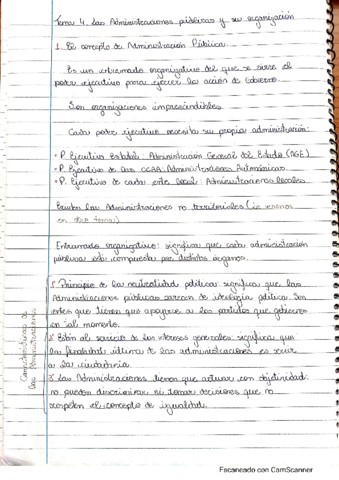 Tema 4. Las Administraciones públicas y su organización
1. El concepto de Administración Pública.
Es un entramado organizativo del que se sirve el
poder ejecutivo para ejercer la acción de Gobierno.
Son organizaciones imprescindibles.
Cada poder ejecutivo necesita su propia administración:
- P. Ejecutivo Estatal: Administración General del Estado (AGE)
- P. Ejecutivo de las CCAA: Administraciones Autonómicas.
- P. Ejecutivo de cada ente local: Administraciones locales.
Existen las Administraciones no territoriales (lo vemos
en otro tema)
Entramado organizativo: significa que cada administración
pública está compuesta por distintos órganos.
Características de las Administraciones
1. Principio de la neutralidad política: significa que las
Administraciones públicas carecen de ideología política. Son
entes que tienen que apoyarse a los partidos que gobiernen
en tal momento.
2. Están al servicio de los intereses generales: significa que
la finalidad última de las administraciones es servir
a la ciudadanía.
3. Las Administraciones tienen que actuar con objetividad:
no pueden discriminar ni tomar decisiones que no
respeten el concepto de igualdad.
Escaneado con CamScanner